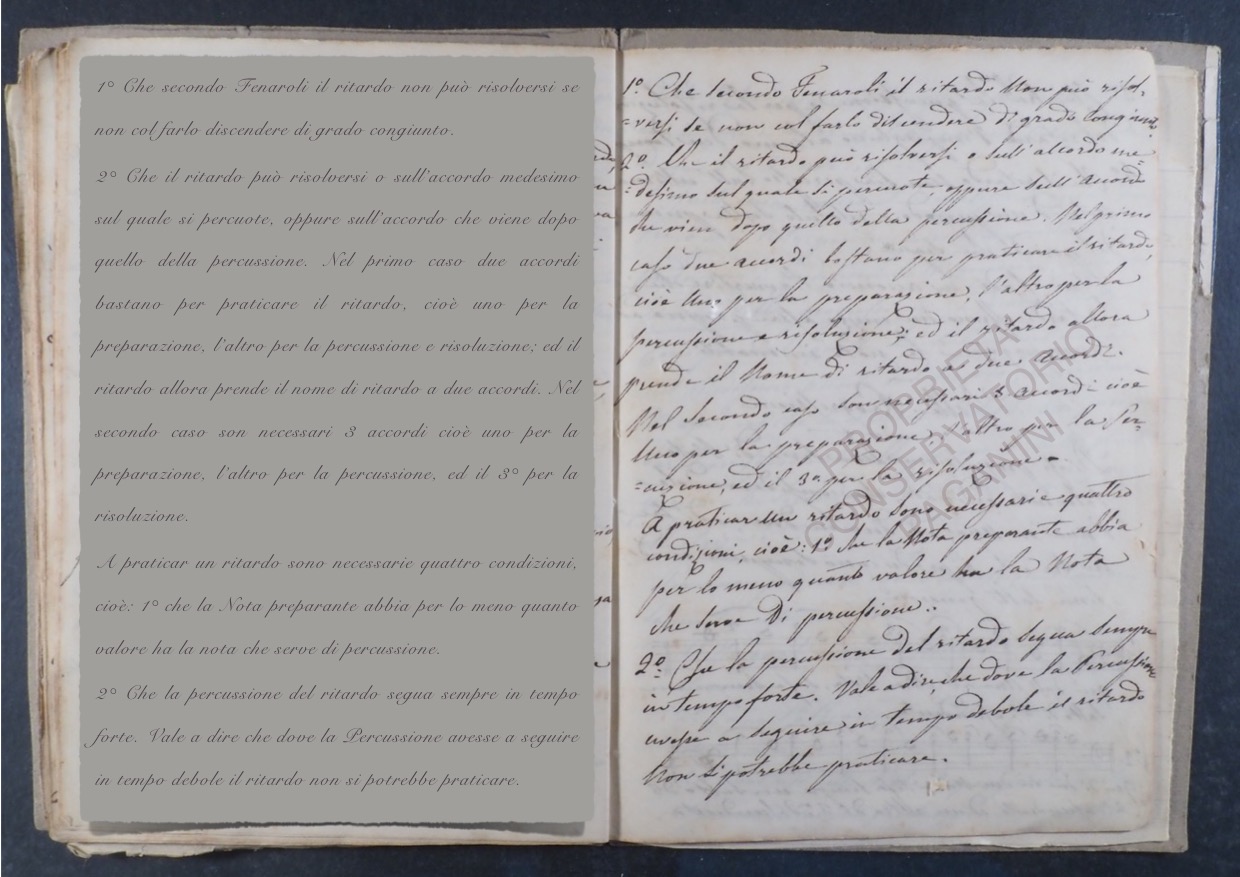 1° Che secondo Fenaroli il ritardo non può risolversi se
non col farlo discendere di grado congiunto.
2° Che il ritardo può risolversi o sull'accordo medesimo
sul quale si percuote, oppure sull'accordo che viene dopo
quello della percussione. Nel primo caso due accordi
bastano per praticare il ritardo, cioè uno per la
preparazione, l'altro per la percussione e risoluzione; ed il
ritardo allora prende il nome di ritardo a due accordi. Nel
secondo caso son necessari 3 accordi cioè uno per la
preparazione, l'altro per la percussione, ed il 3° per la
risoluzione.
A praticar un ritardo sono necessarie quattro condizioni,
cioè: 1° che la Nota preparante abbia per lo meno quanto
valore ha la nota che serve di percussione.
2° Che la percussione del ritardo segua sempre in tempo
forte. Vale a dire che dove la Percussione avesse a seguire
in tempo debole il ritardo non si potrebbe praticare.
1° Che secondo Fenaroli il ritardo Non può risol,
=versi se non col farlo discendere di grado congiunto
2° Che il ritardo può risolversi o sull'accordo me=
=desimo sul quale si percuote, oppure sull'accordo
che viene dopo quello della percussione. Nel primo
caso due accordi bastano per praticare il ritardo,
cioè Uno per la preparazione, l'altro per la
percussione e risoluzione; ed il ritardo allora
prende il Nome di ritardo a due accordi.
Nel Secondo caso son necessari 3 accordi cioè
Uno per la preparazione, l'altro per la Per=
=cussione, ed il 3° per la risoluzione.
A praticar un ritardo sono necessarie quattro
condizioni, cioè: 1° che la Nota preparante abbia
per lo meno quanto valore ha la Nota
che serve Di percussione..
2° Che la percussione del ritardo segua sempre
in tempo forte. Vale a dire, che dove la Percussione
avesse a seguire in tempo debole il ritardo
Non si potrebbe praticare.
PROPRIETÀ
CONSERVATORIO
PAGANINI